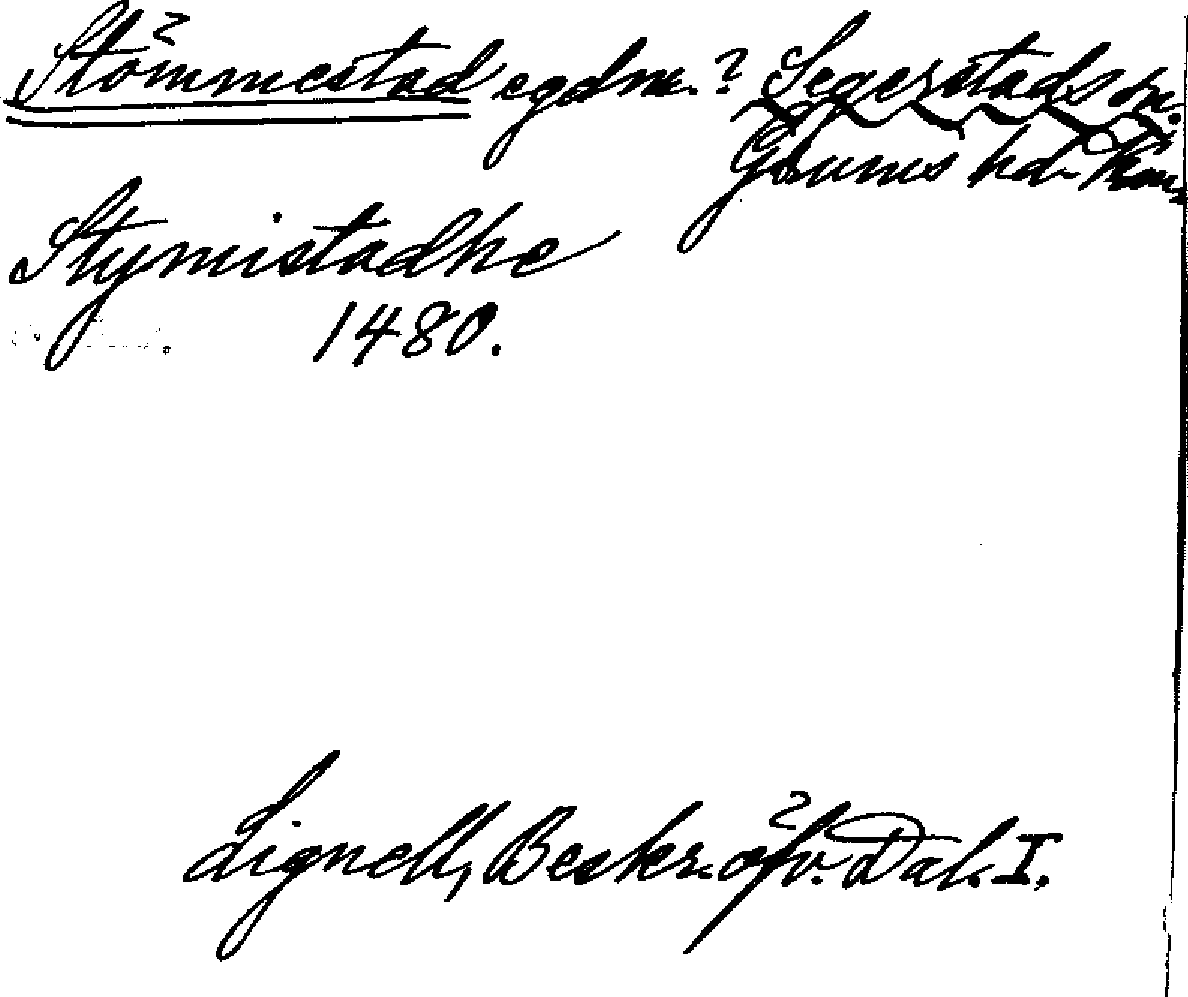 Stömmestad egdm.? Segerstads sn.
Grums hd.
Stymistadhe
1480.
Lignell, Beskr. öfv. Dal. I.